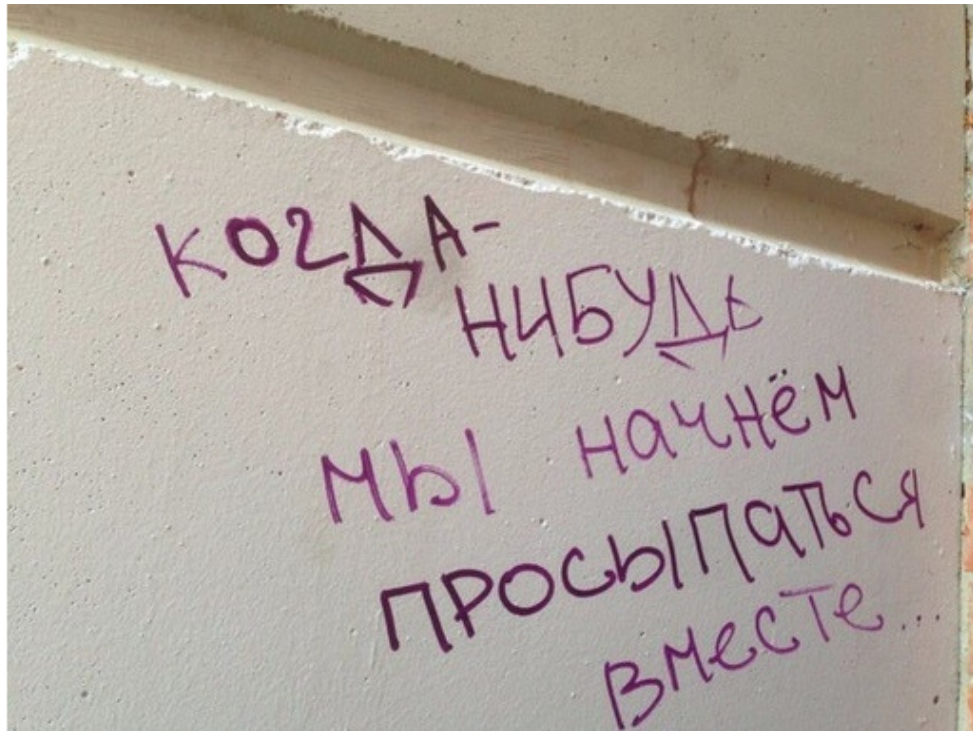 КОГДА-
НИБУДЬ
МЫ начнём
ПРОСЫПаТЬСЯ
вместе...